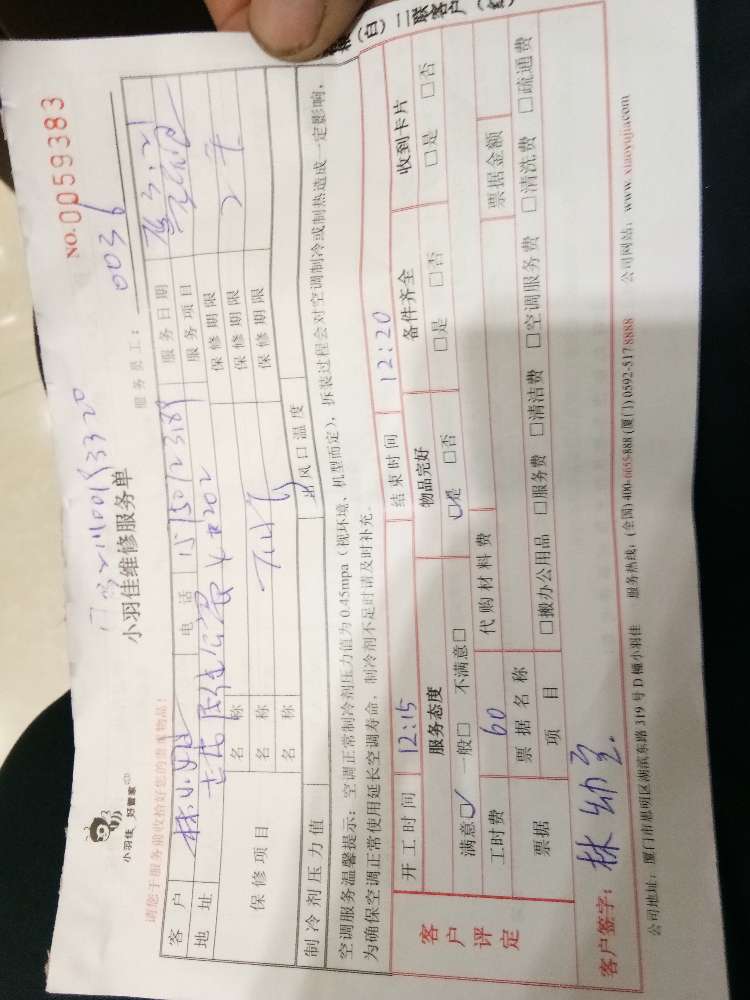 (白) 二联客户 (红)
小羽佳 好管家
小羽佳维修服务单
NO.0059383
请您于服务前收拾好您的贵重物品!
服务员工: 0036
客户 林小姐 电话 服务日期
地址 服务项目
保修项目 名称 保修期限
名称 保修期限
名称 保修期限
制冷剂压力值 出风口温度
空调服务温馨提示: 空调正常制冷剂压力值为 0.45mpa (视环境、机型而定), 拆装过程会对空调制冷或制热造成一定影响,
为确保空调正常使用延长空调寿命, 制冷剂不足时请及时补充。
客户评定 开工时间 12:15 结束时间 12:20
服务态度 物品完好 备件齐全 收到卡片
满意☑ 一般□ 不满意□ ☑是 □否 □是 □否 □是 □否
工时费 60 代购材料费
票据 票据名称 票据金额
项目 □搬办公用品 □服务费 □清洁费 □空调服务费 □清洗费 □疏通费
客户签字: 林
公司地址: 厦门市思明区湖滨东路 319 号 D 幢小羽佳 服务热线: (全国) 400-6655-888 (厦门) 0592-5178888 公司网站: www.xiaoyujia.com